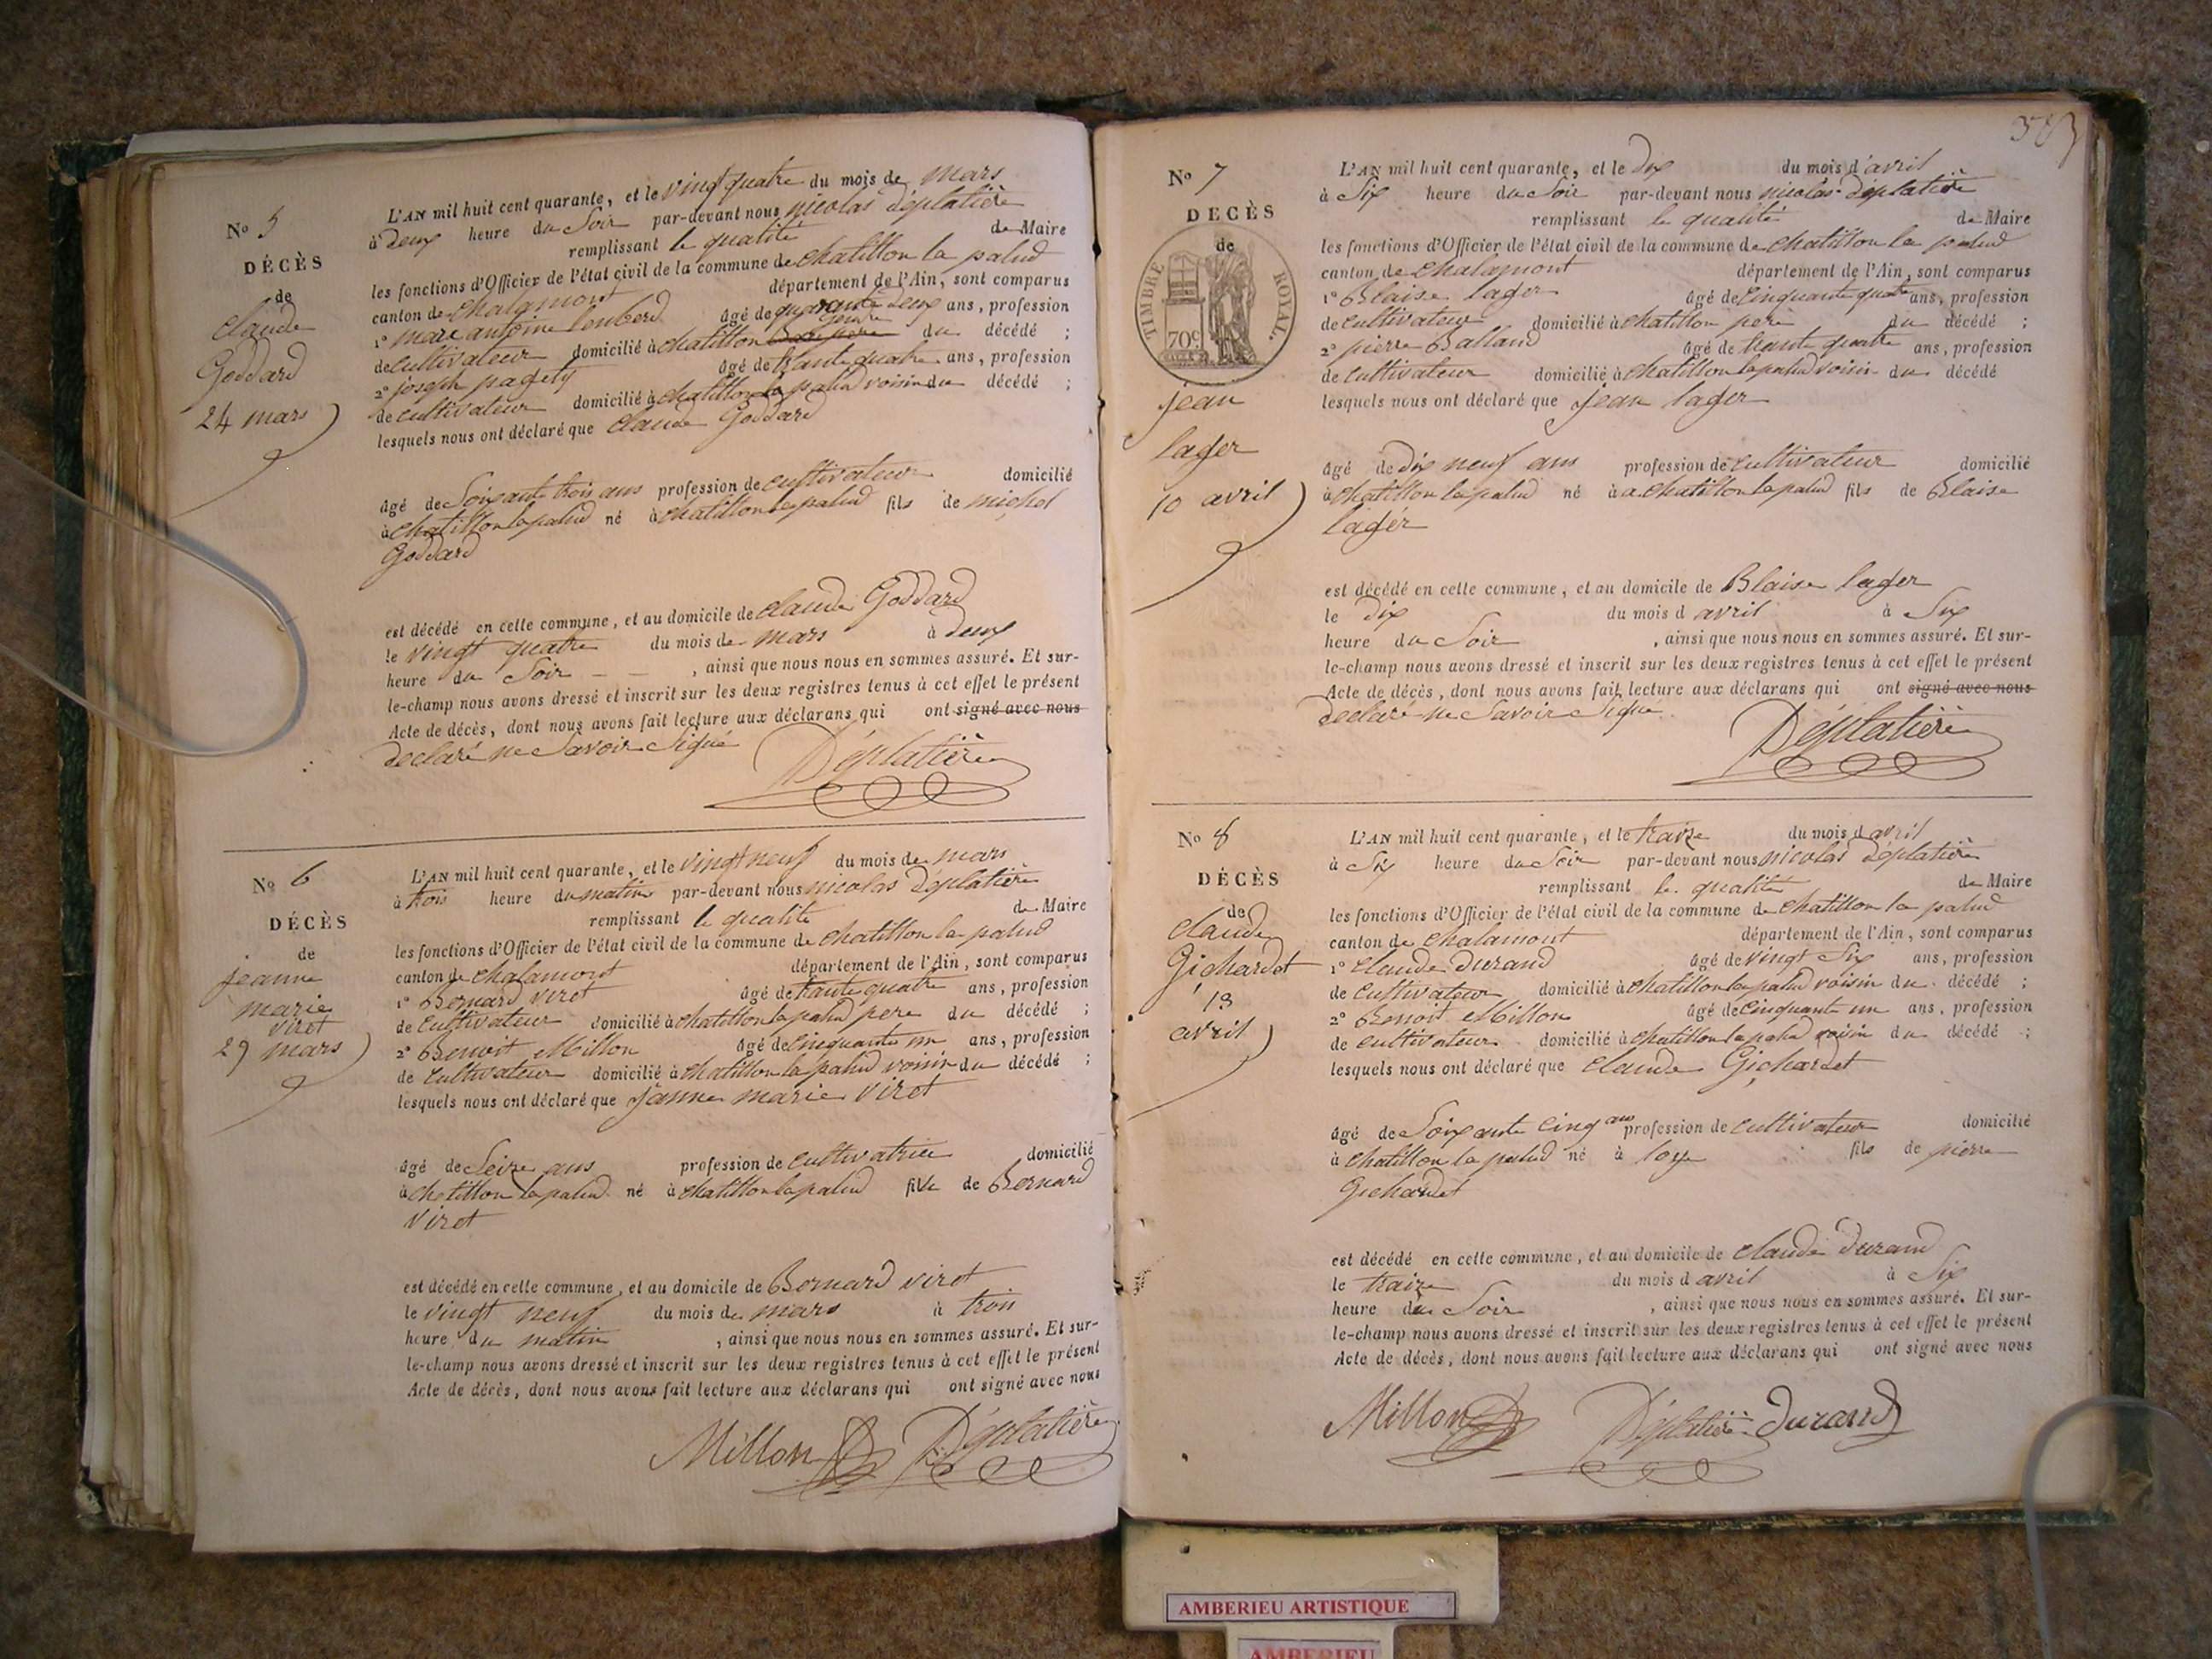 No 5
DÉCÈS
de
claude
Goddard
24 mars
L'AN mil huit cent quarante, et le vingt quatre du mois de mars
à deux heure du Soir par-devant nous nicolas Déplatière
remplissant la qualité de Maire
les fonctions d'Officier de l'état civil de la commune de chatillon la palud
canton de chalamont département de l'Ain, sont comparus
1° marc antoine âgé de quarante deux ans, profession
de cultivateur domicilié à chatillon gendre du décédé ;
2° joseph pagety âgé de trante quatre ans, profession
de cultivateur domicilié à chatillon la palud voisin du décédé ;
lesquels nous ont déclaré que claude Goddard
âgé de Soixante trois ans profession de cultivateur domicilié
à chatillon la palud né à chatillon la palud fils de michel
Goddard
est décédé en cette commune, et au domicile de claude Goddard
le vingt quatre du mois de mars à deux
heure du Soir – – , ainsi que nous nous en sommes assuré. Et sur-
le-champ nous avons dressé et inscrit sur les deux registres tenus à cet effet le présent
Acte de décès, dont nous avons fait lecture aux déclarans qui ont signé avec nous
declaré ne Savoir Signé
Déplatière
No 6
DÉCÈS
de
jeanne
marie
viret
29 mars
L'AN mil huit cent quarante, et le vingt neuf du mois de mars
à trois heure du matin par-devant nous nicolas Déplatière
remplissant la qualité de Maire
les fonctions d'Officier de l'état civil de la commune de chatillon la palud
canton de chalamont département de l'Ain, sont comparus
1° Bernard viret âgé de trante quatre ans, profession
de cultivateur domicilié à chatillon la palud pere du décédé ;
2° Benoit Millon âgé de cinquante un ans, profession
de cultivateur domicilié à chatillon la palud voisin du décédé ;
lesquels nous ont déclaré que janne marie viret
âgé de Seize ans profession de cultivatrice domicilié
à chatillon la palud né à chatillon la palud fille de Bernard
viret
est décédé en cette commune, et au domicile de Bernard viret
le vingt neuf du mois de mars à trois
heure du matin , ainsi que nous nous en sommes assuré. Et sur-
le-champ nous avons dressé et inscrit sur les deux registres tenus à cet effet le présent
Acte de décès, dont nous avons fait lecture aux déclarans qui ont signé avec nous
Millon Déplatière
No 7
DÉCÈS
de
TIMBRE ROYAL.
70c
jean
lager
10 avril
L'AN mil huit cent quarante, et le dix du mois d'avril
à Six heure du Soir par-devant nous nicolas Déplatière
remplissant la qualité de Maire
les fonctions d'Officier de l'état civil de la commune de chatillon la palud
canton de chalamont département de l'Ain, sont comparus
1° Blaise lager âgé de cinquante quatre ans, profession
de cultivateur domicilié à chatillon pere du décédé ;
2° pierre Balland âgé de trante quatre ans, profession
de cultivateur domicilié à chatillon la palud voisin du décédé
lesquels nous ont déclaré que jean lager
âgé de dix neuf ans profession de cultivateur domicilié
à chatillon la palud né à a chatillon la palud fils de Blaise
lager
est décédé en cette commune, et au domicile de Blaise lager
le dix du mois d avril à Six
heure du Soir , ainsi que nous nous en sommes assuré. Et sur-
le-champ nous avons dressé et inscrit sur les deux registres tenus à cet effet le présent
Acte de décès, dont nous avons fait lecture aux déclarans qui ont signé avec nous
declaré ne Savoir Signé
Déplatière
No 8
DÉCÈS
de
claude
Gichardet
13
avril
L'AN mil huit cent quarante, et le traize du mois d avril
à Six heure du Soir par-devant nous nicolas Déplatière
remplissant la qualité de Maire
les fonctions d'Officier de l'état civil de la commune de chatillon la palud
canton de chalamont département de l'Ain, sont comparus
1° claude durand âgé de vingt Six ans, profession
de cultivateur domicilié à chatillon la palud voisin du décédé ;
2° Benoit Millon âgé de cinquante un ans, profession
de cultivateur domicilié à chatillon la palud voisin du décédé ;
lesquels nous ont déclaré que claude Gichardet
âgé de Soixante cinq ans profession de cultivateur domicilié
à chatillon la palud né à loye fils de pierre
Gichardet
est décédé en cette commune, et au domicile de claude durand
le traize du mois d avril à Six
heure du Soir , ainsi que nous nous en sommes assuré. Et sur-
le-champ nous avons dressé et inscrit sur les deux registres tenus à cet effet le présent
Acte de décès, dont nous avons fait lecture aux déclarans qui ont signé avec nous
Millon Déplatière durand
AMBERIEU ARTISTIQUE
AMBERIEU